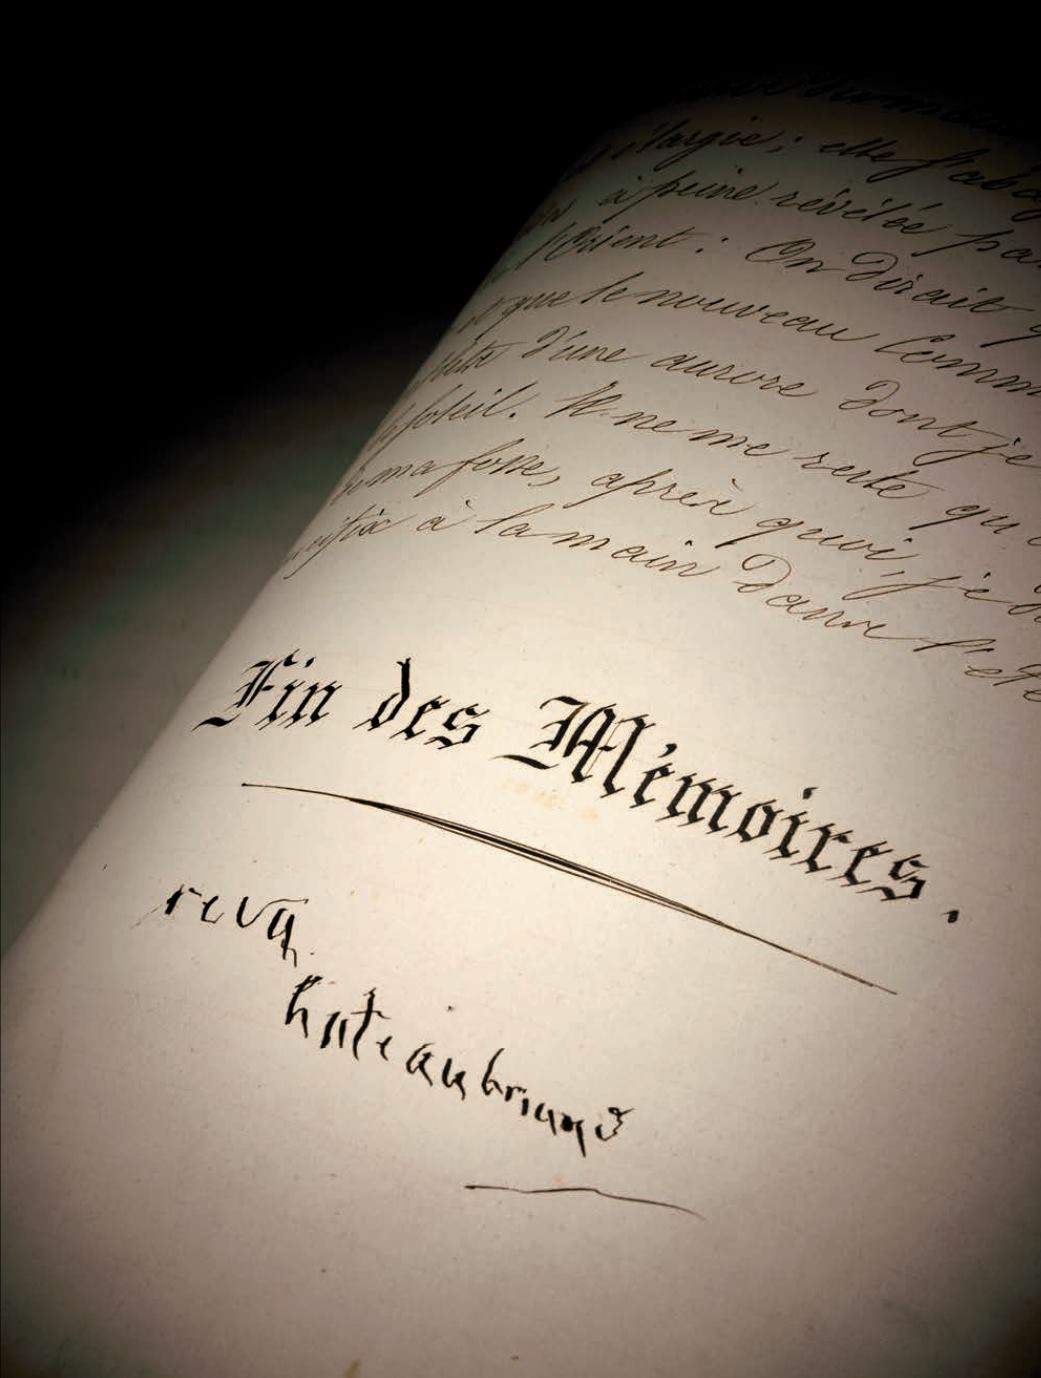 élargie; elle s'abo
à peine révélée pa
l'Orient: On dirait q
et que le nouveau Comm
d'une aurore dont je
soleil. Il ne me reste qu'
ma fosse, après quoi, je d
à la main dans l'éte
Fin des Mémoires.
revu
hateaubriand